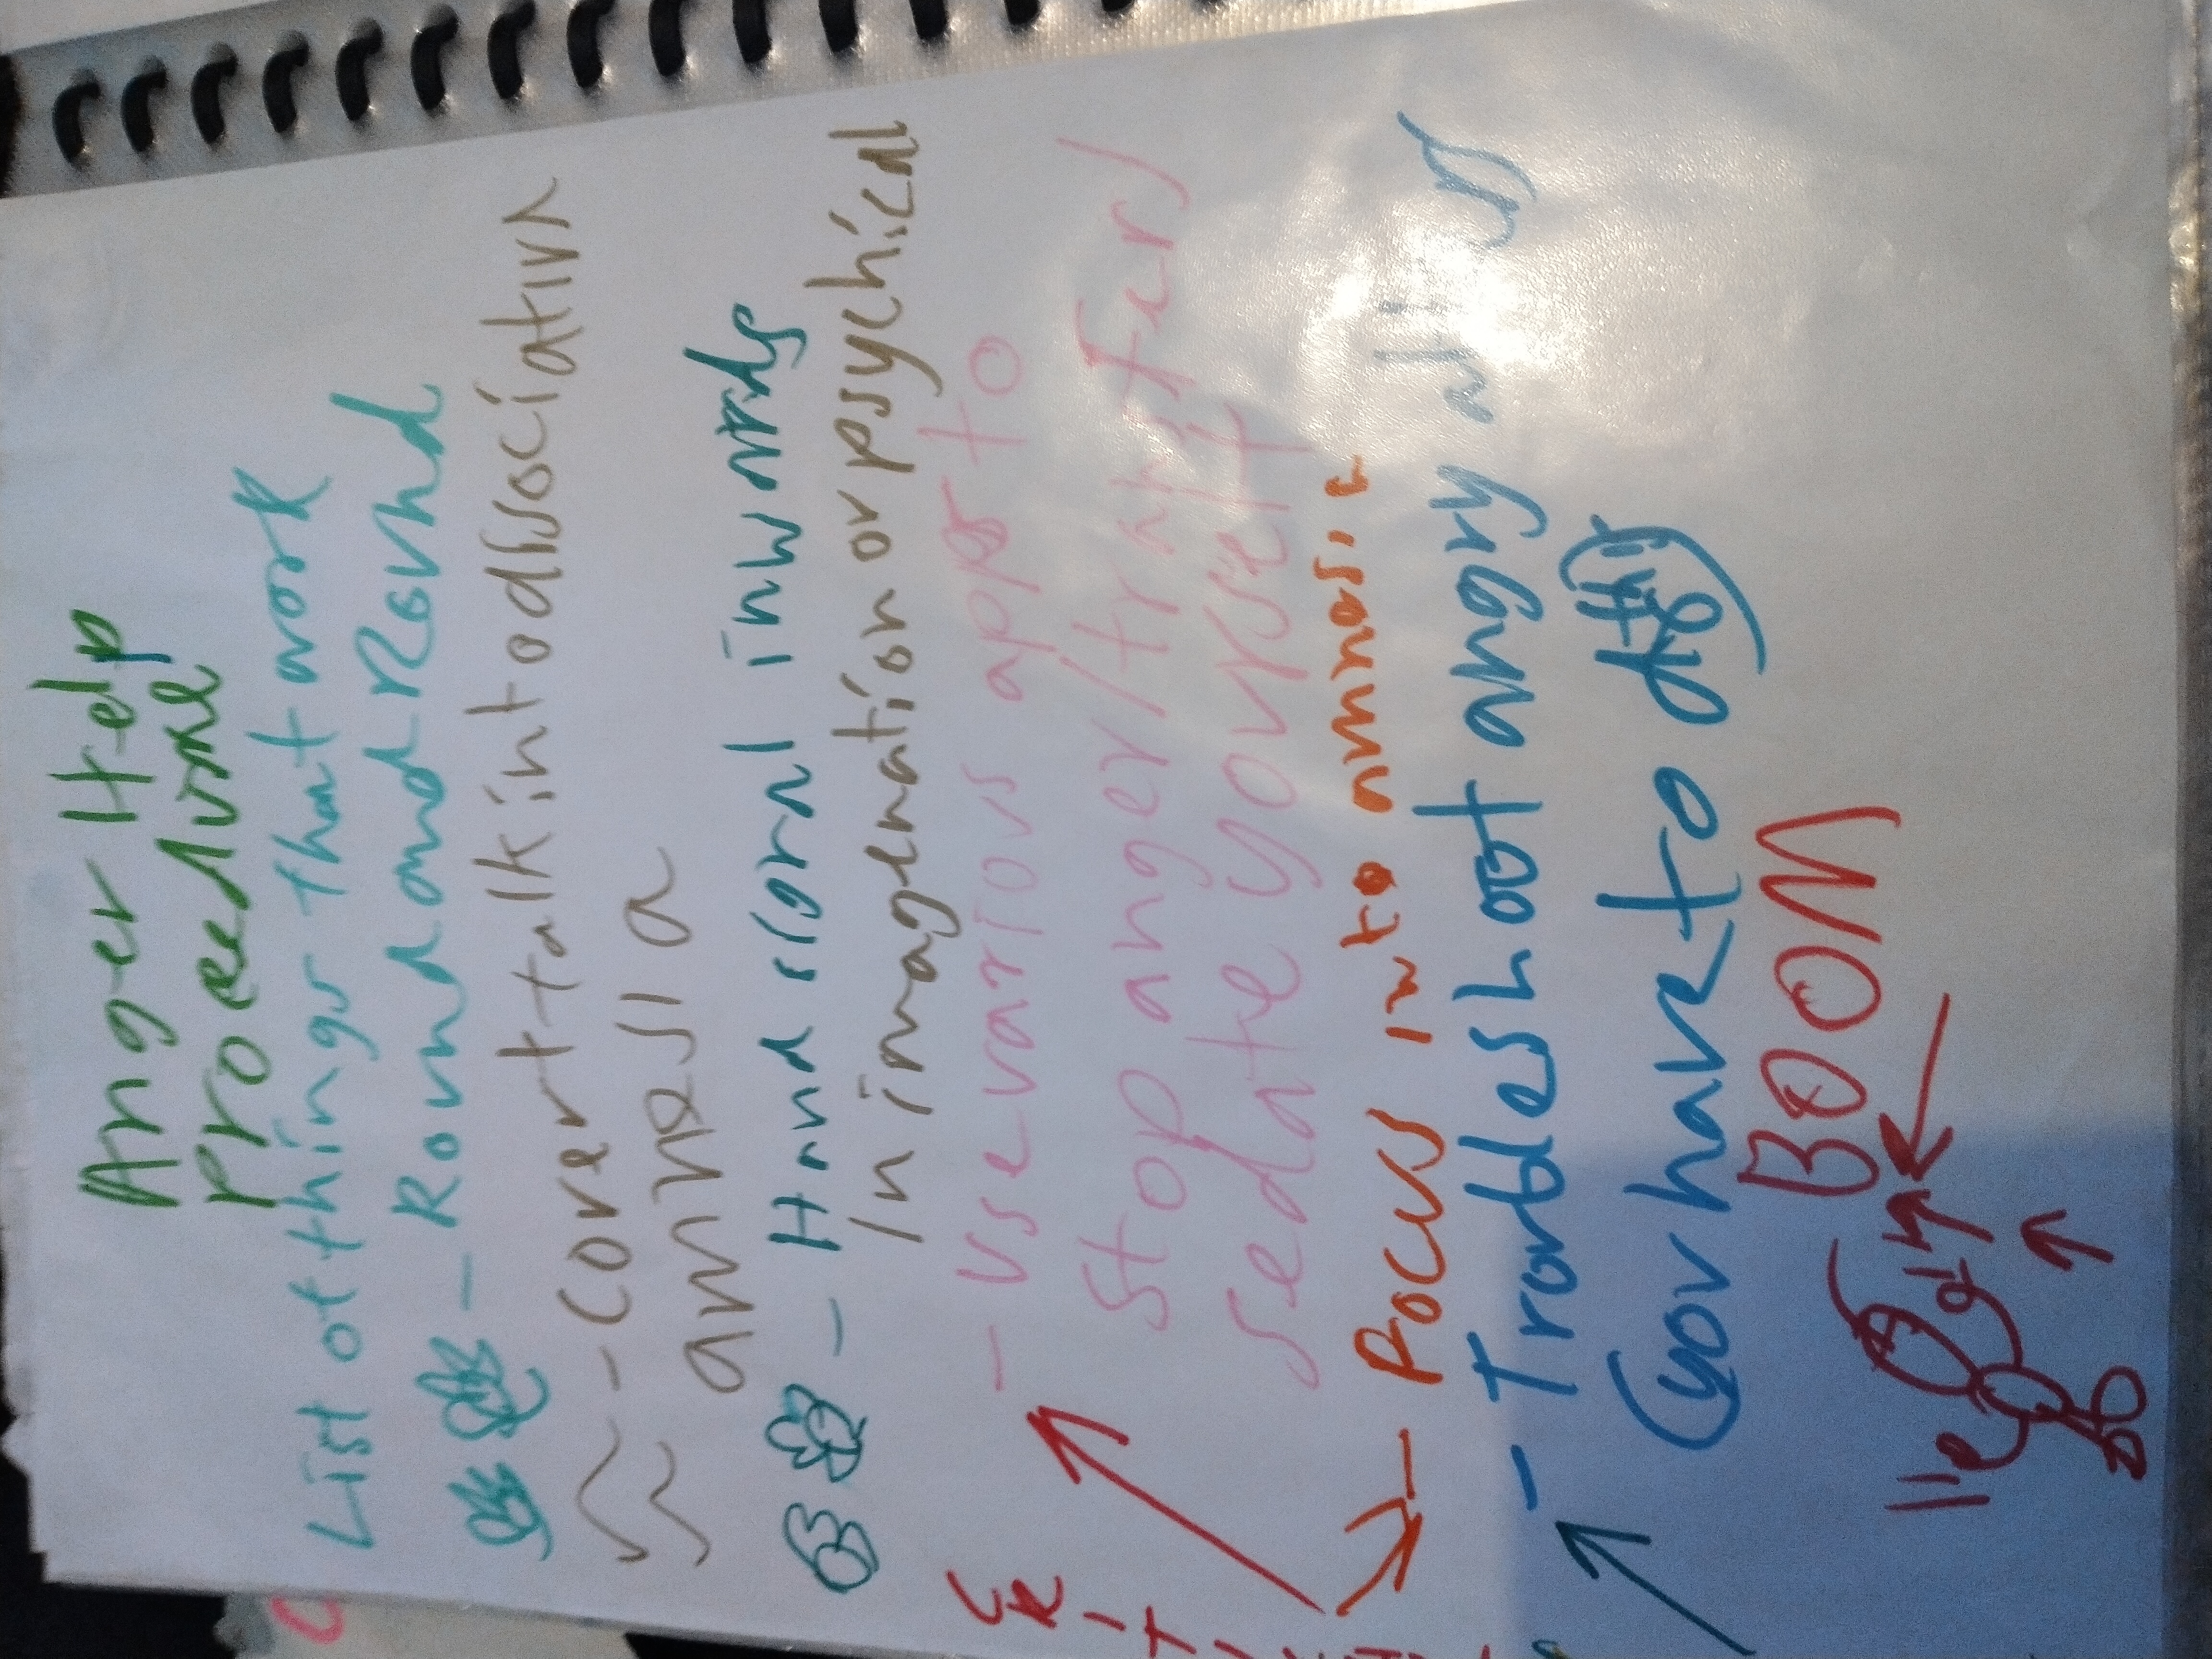 Anger Help
Proceedure
List of things that work
- Round and Round
- Covert talk into dissociation
amnesia
- Hand signal inwards
In imagenation or psychical
- Use various apps to
stop anger/transfers/
sedate yourself
- Focus into music
- Troubleshoot angry alters
(you have to do this)
BOOM